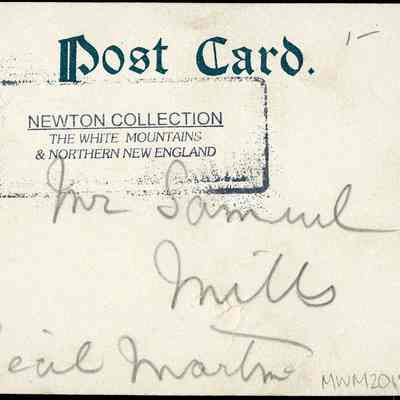 Post Card.
1-
NEWTON COLLECTION
THE WHITE MOUNTAINS
& NORTHERN NEW ENGLAND
Mr Samuel
Mills
Cecil Martin